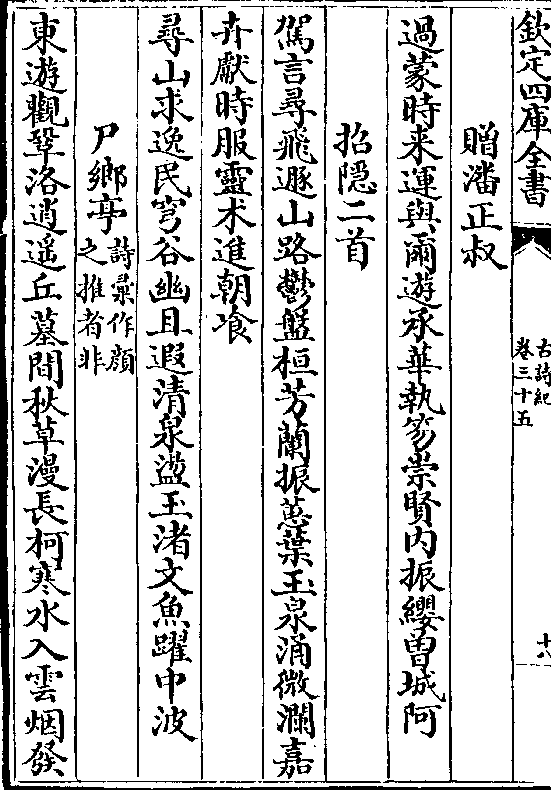 欽定四庫全書
古詩紀
卷三十五
十六
贈潘正叔
過蒙時來運與爾遊承華執笏崇賢内振纓曽城阿
招隠二首
駕言尋飛遯山路鬱盤桓芳蘭振蕙葉玉泉涌微瀾嘉
卉獻時服靈术進朝飡
尋山求逸民穹谷幽且遐清泉盪玉渚文魚躍中波
尸鄉亭
詩彚作顔
之推者非
東遊觀鞏洛逍遥丘墓間秋草漫長柯寒水入雲烟發